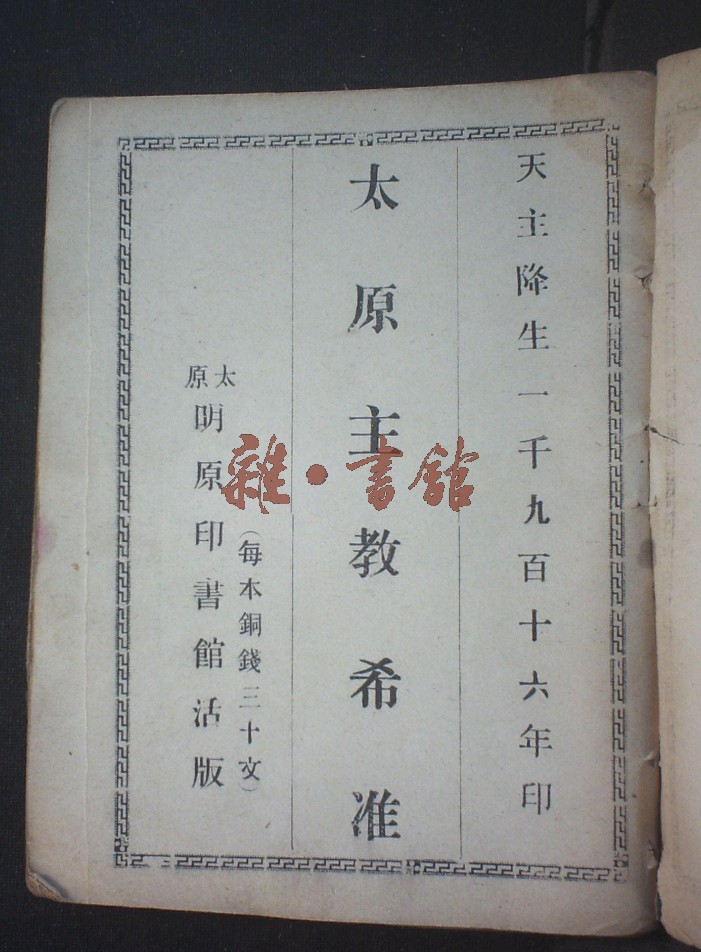 天主降生一千九百十六年印
太原主教希准
（每本銅錢三十文）
太原
明原印書館活版
雜·書館